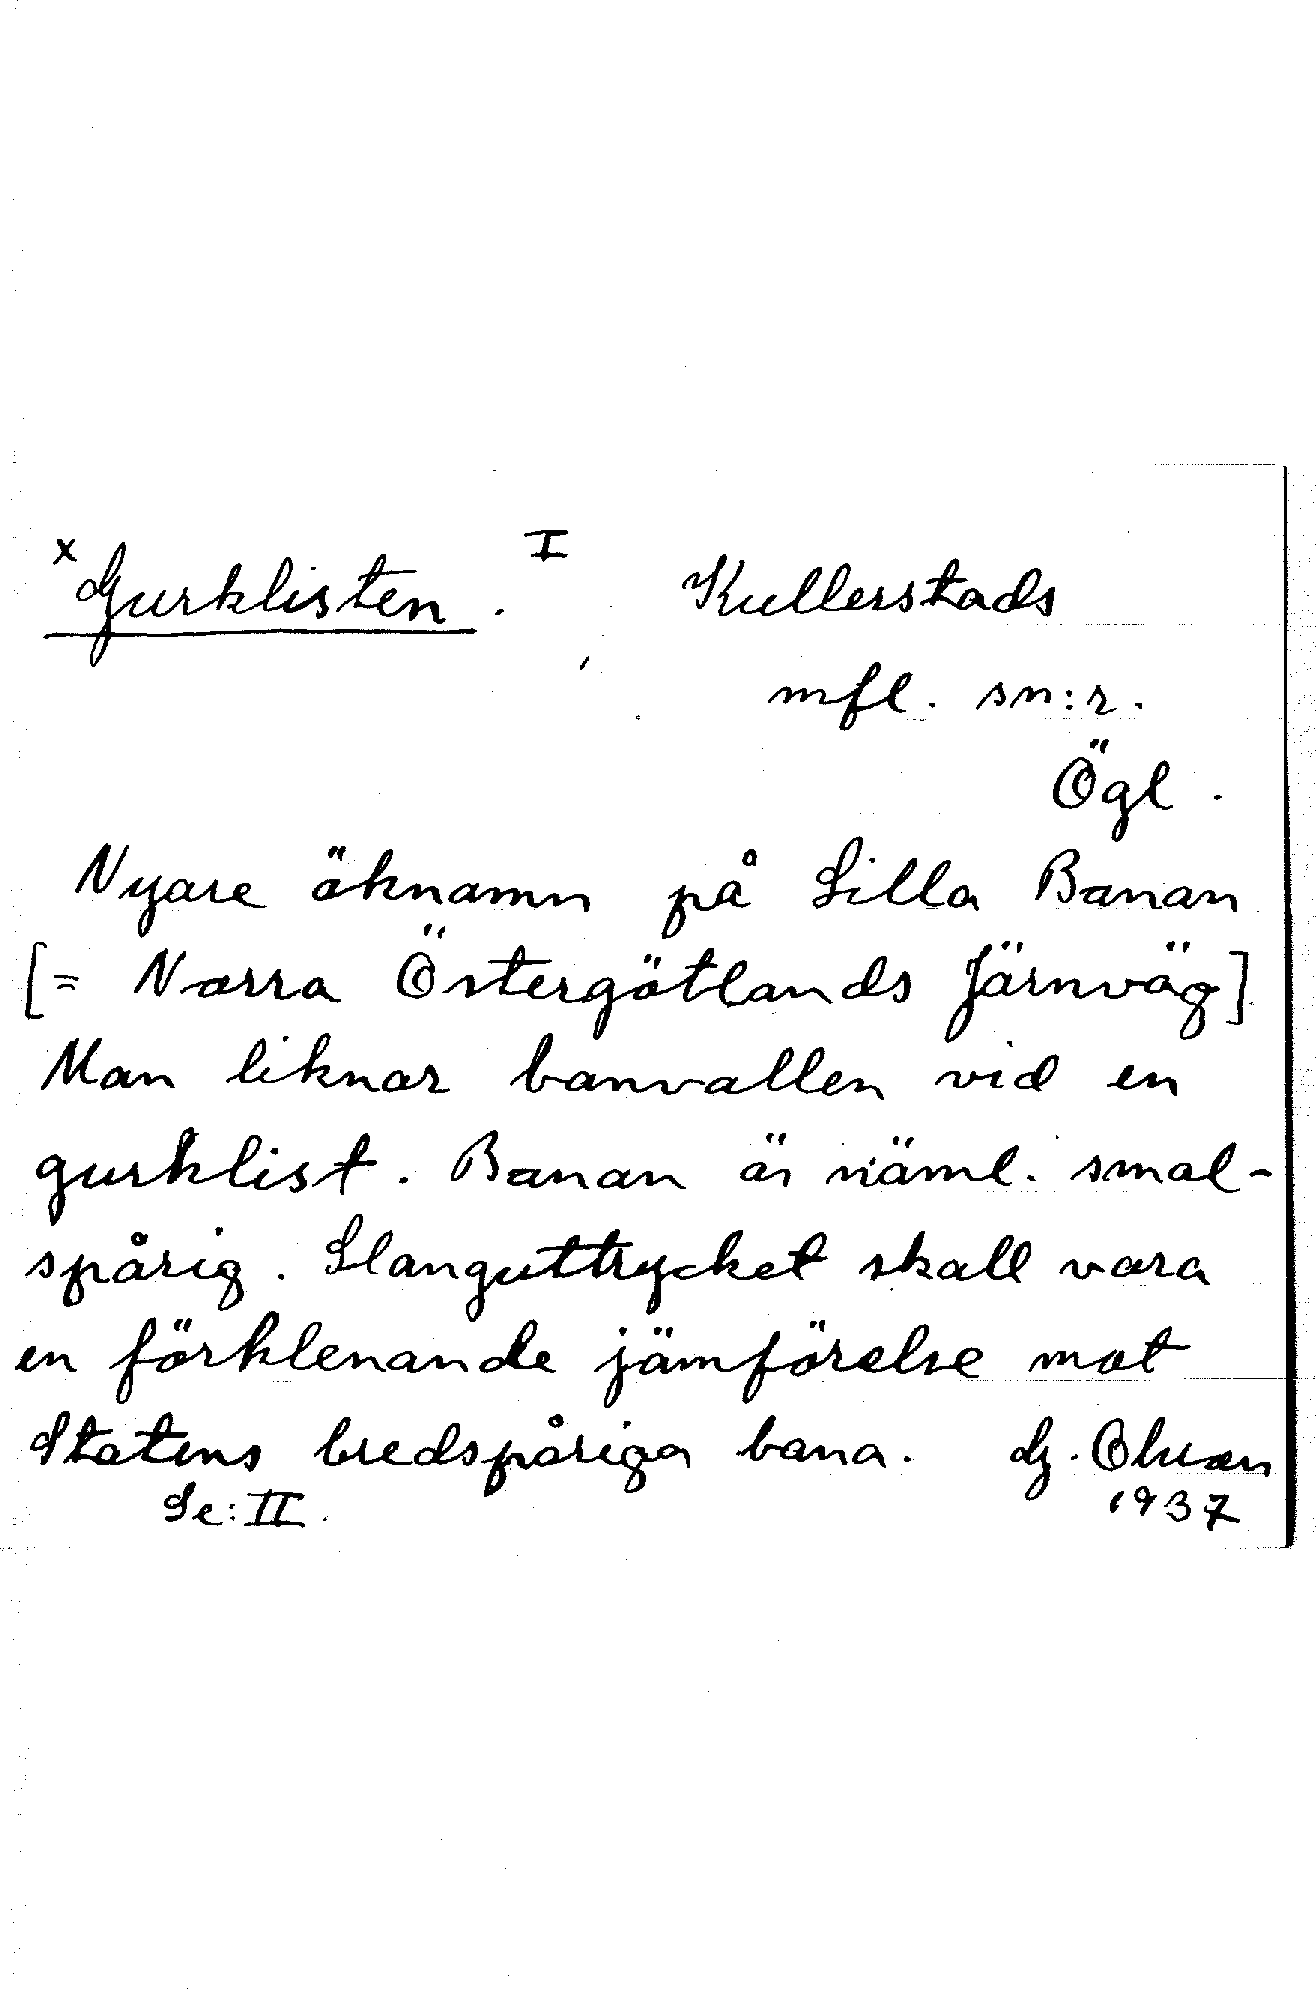 x Gurklisten. I Kullerstads
mfl. sn:r.
Ögl.
Nyare öknamn på Lilla Banan
[= Norra Östergötlands Järnväg]
Man liknar banvallen vid en
gurklist. Banan är näml. smal-
spårig. Slanguttrycket skall vara
en förklenande jämförelse mot
Statens bredspåriga bana. G.
Se: II. 1937